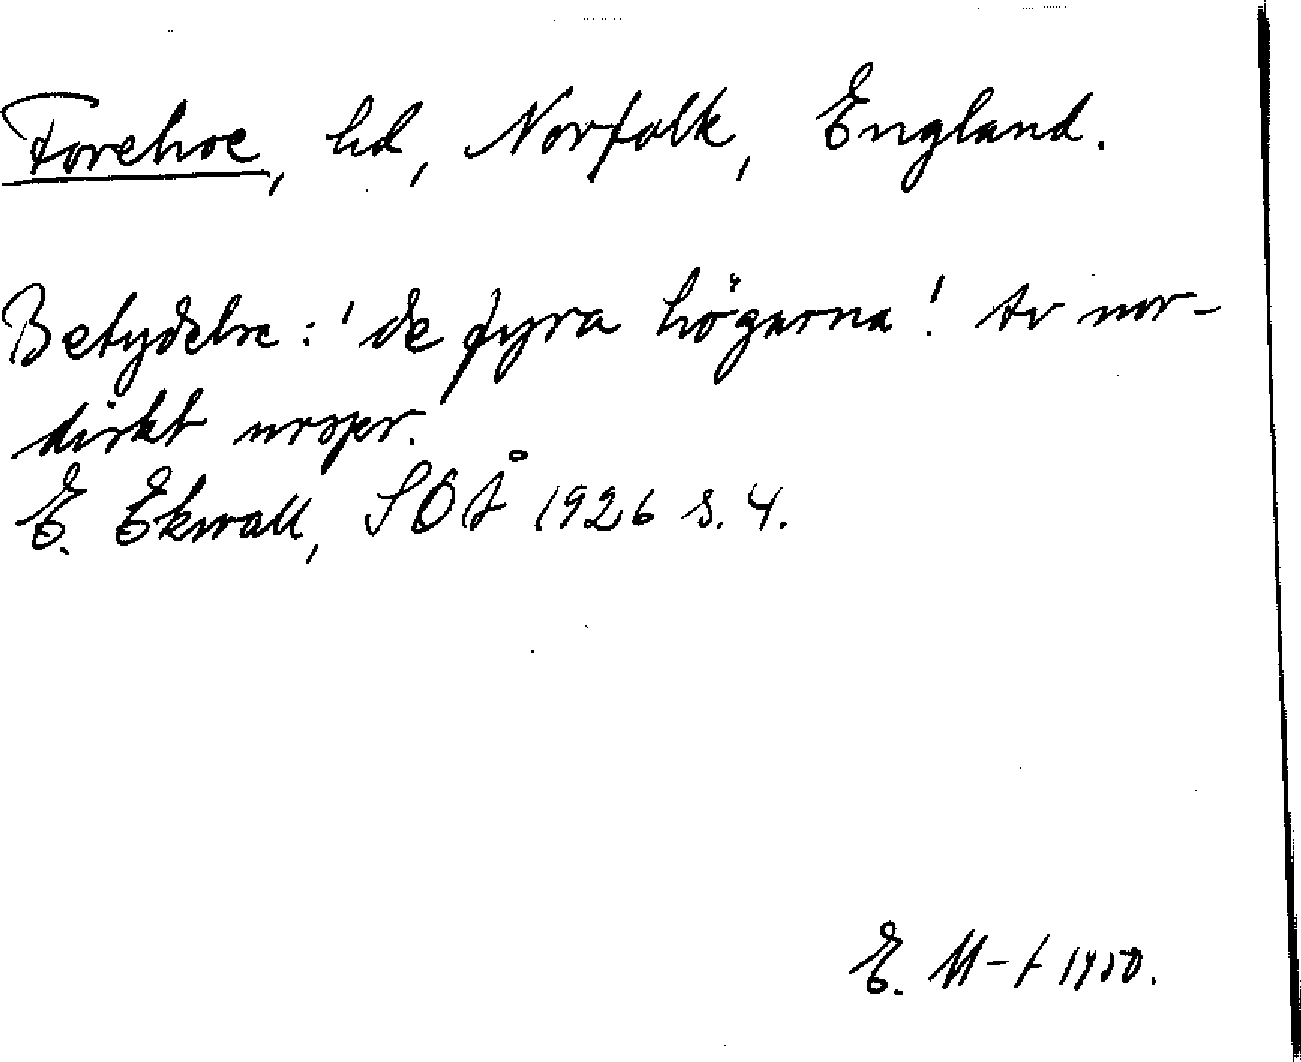 Forehoe, hd, Norfolk, England.
Betydelse: 'de fyra högarna'. Av nor-
diskt urspr.
E. Ekwall, SOÅ 1926 s. 4.
E. M-t 1950.